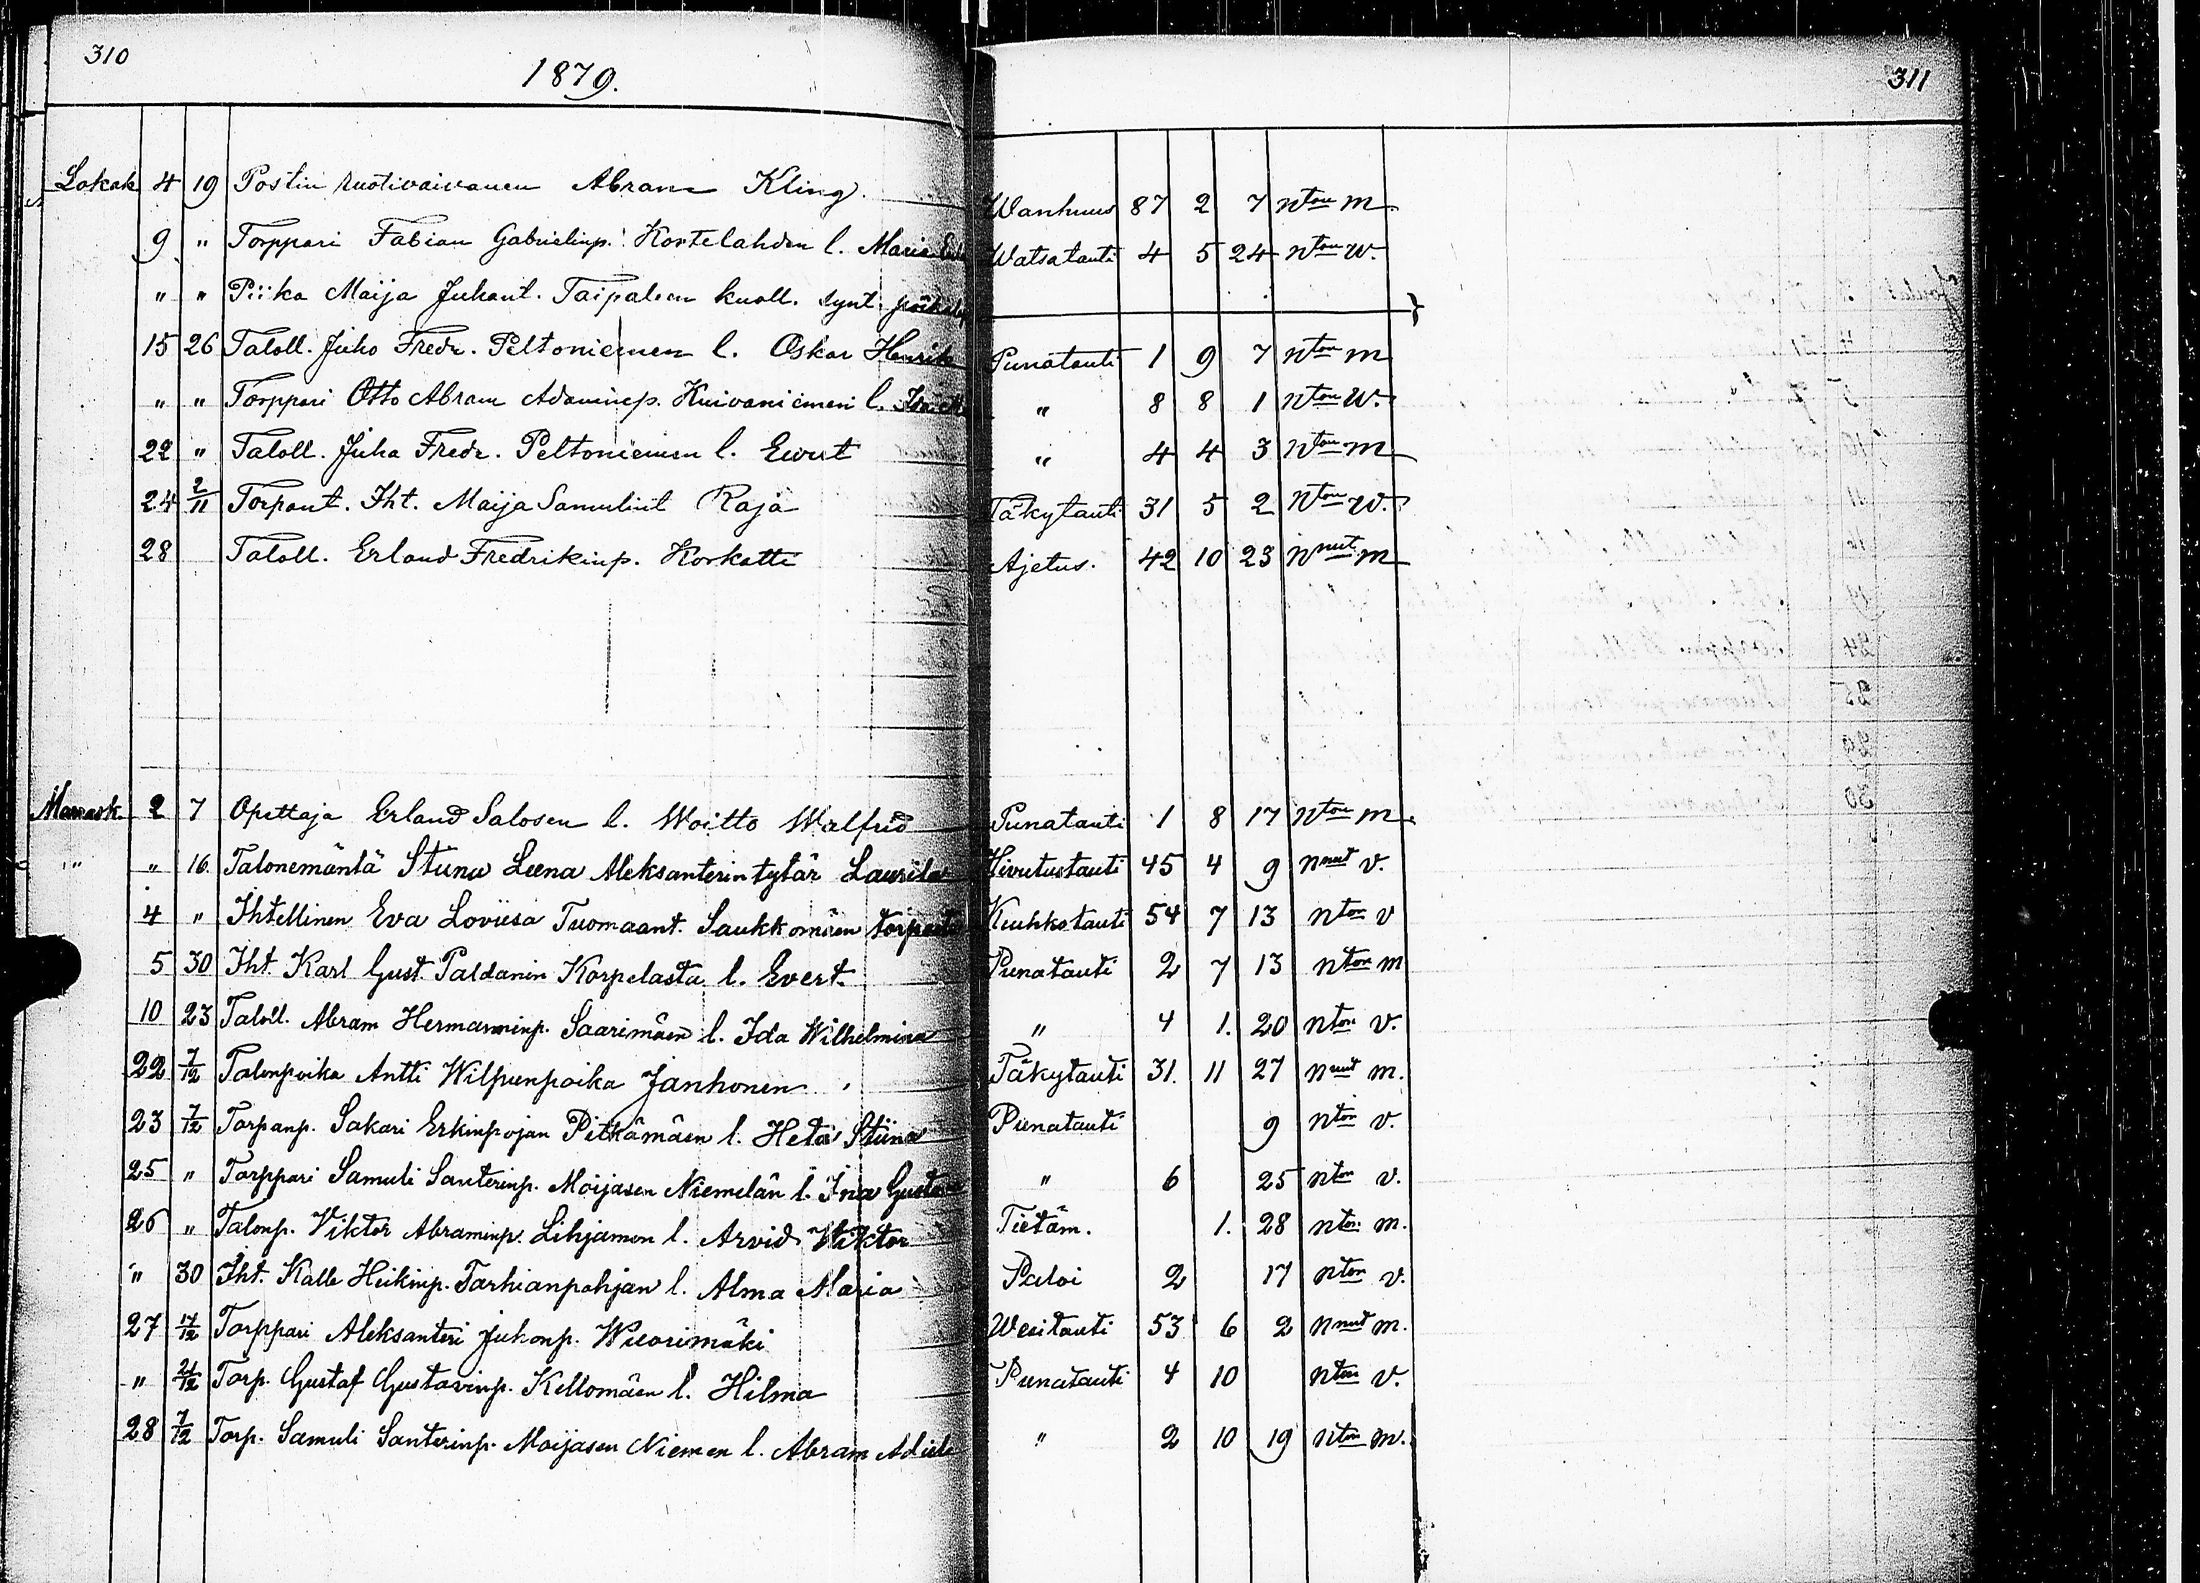 310
1879.
311
Lokak 4 19 Postin ruotivaivanen Abram Kling Wanhuus 87 2 7 nton m
9 " Torppari Fabian Gabrielinp. Kortelahden l. Maria Watsatauti 4 5 24 nton w.
" " Piika Maija Juhant. Taipaleen kuoll. synt.
15 26 Taloll. Juho Fredr. Peltoniemen l. Oskar Henrik Punatauti 1 9 7 nton m
" " Torppari Otto Abram Adaminp. Kuivaniemen l. " 8 8 1 nton w.
22 " Taloll. Juha Fredr. Peltoniemen l. Ewert " 4 4 3 nton m
24 2/11 Torpant. Iht. Maija Samulint Raja Täkytauti 31 5 2 nton w.
28 Taloll. Erland Fredrikinp. Korkatti Ajetus. 42 10 23 nnut m
Marrask. 2 7 Opettaja Erland Salosen l. Woitto Walfrid Punatauti 1 8 17 nton m.
" " 16. Talonemäntä Stiina Leena Aleksanterintytär Laurila Hivutustauti 45 4 9 nnut v.
4 " Ihtellinen Eva Loviisa Tuomaant. Saukkomäen Keuhkotauti 54 7 13 nton v
5 30 Iht. Karl Gust. Paldanin Korpelasta l. Evert. Punatauti 2 7 13 nton m
10 23 Taloll. Abram Hermanninp. Saarimäen l. Ida Wilhelmina " 4 1. 20 nton v.
22 7/12 Talonpoika Antti Wilpunpoika Janhonen Täkytauti 31. 11 27 nnut m.
23 7/12 Torpanp. Sakari Erkinpojan Pitkämäen l. Heta Stiina Punatauti 9 nton v.
25 " Torppari Samuli Santerinp. Moijasen Niemelän l. Ina Gustava " 6 25 nton v.
26 " Talonp. Viktor Abraminp. Lihjamon l. Arvid Wiktor Tietäm. 1. 28 nton m.
" 30 Iht. Kalle Heikinp. Tarhianpohjan l. Alma Maria Paloi 2 17 nton v.
27 17/12 Torppari Aleksanteri Juhonp. Wuorimäki Wesitauti 53 6 2 nnut m.
" 24/12 Torp. Gustaf Gustavinp. Kellomäen l. Hilma Punatauti 4 10 nton v.
28 7/12 Torp. Samuli Santerinp. Moijasen Niemen l. Abram " 2 10 19 nton m.